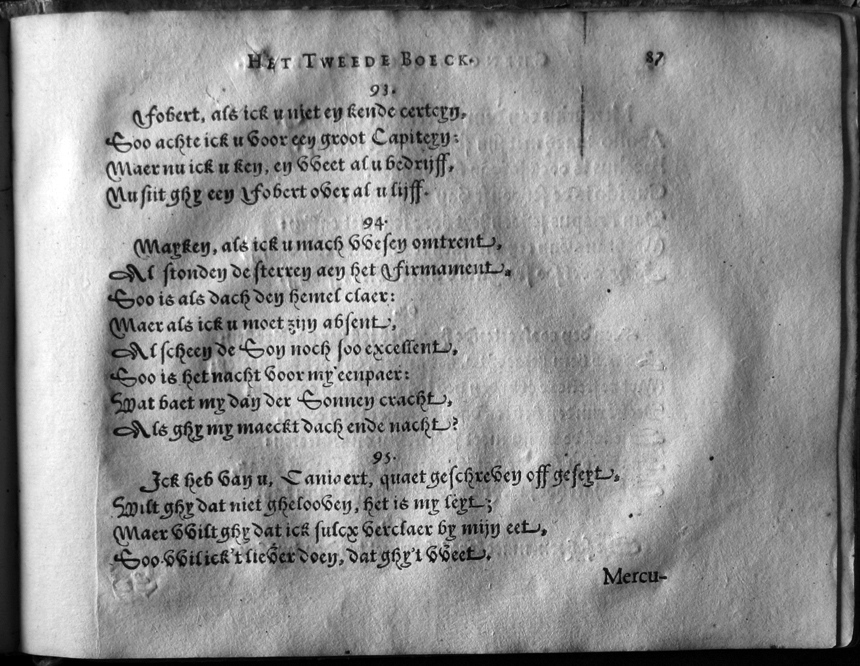 HET TWEEDE BOECK. 87
93.
Jobert, als ick u niet en kende certeyn,
Soo achte ick u voor een groot Capiteyn:
Maer nu ick u ken, en weet al u bedrijff,
Nu siit ghy een Jobert over al u lijff.
94.
Mayken, als ick u mach wesen omtrent,
Al stonden de sterren aen het Firmament,
Soo is als dach den hemel claer:
Maer als ick u moet zijn absent,
Al scheen de Son noch soo excellent,
Soo is het nacht voor my eenpaer:
Wat baet my dan der Sonnen cracht,
Als ghy my maeckt dach ende nacht?
95.
Ick heb van u, quaet geschreven off geseyt,
Wilt ghy dat niet ghelooven, het is my leyt;
Maer wilt ghy dat ick sulcx verclaer by mijn eet,
Soo wil ick't liever doen, dat ghy't weet.
Mercu-